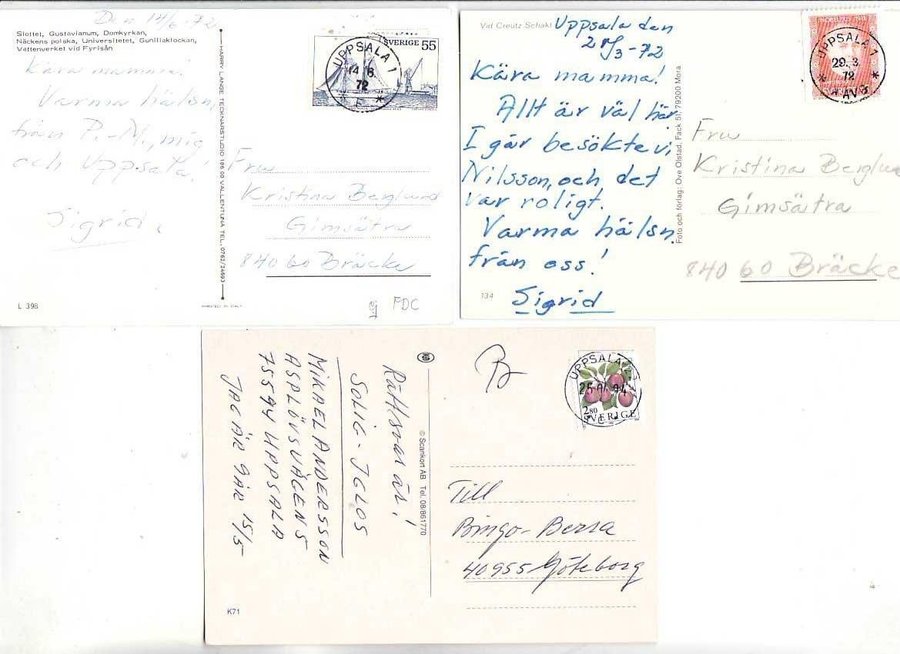 Den 14/6-72
Slottet, Gustavianum, Domkyrkan,
Näckens polska, Universitetet, Gunillaklockan,
Vattenverket vid Fyrisån
Kära mamma!
Varma hälsn.
från P.-N., mig
och Uppsala!
Sigrid.
L 398
HARRY LANGE, TECKNARSTUDIO 186 00 VALLENTUNA TEL. 0762/24693
SVERIGE 55
UPPSALA 1
14.6.
72
Fru
Kristina Berglund
Gimsätra
840 60 Bräcke
FDC
Vid Creutz Schakt
Uppsala den
29/3-72
Kära mamma!
Allt är väl här.
I går besökte vi
Nilsson, och det
var roligt.
Varma hälsn.
från oss!
Sigrid
134
Foto och förlag: Ove Olstad, Fack 5, 79200 Mora
UPPSALA 1
29.3.
72
AVG
Fru
Kristina Berglund
Gimsätra
840 60 Bräcke
Rätt svar är!
SOLIG-IGLOS
MIKAEL ANDERSSON
ASPLÖVSVÄGEN 5
755 94 UPPSALA
JAG ÄR 9 ÅR 15/5
K71
© Scankort AB Tel. 08/861770
B
UPPSALA
94
2.80
SVERIGE
Till
Bingo-Berra
40955 Göteborg